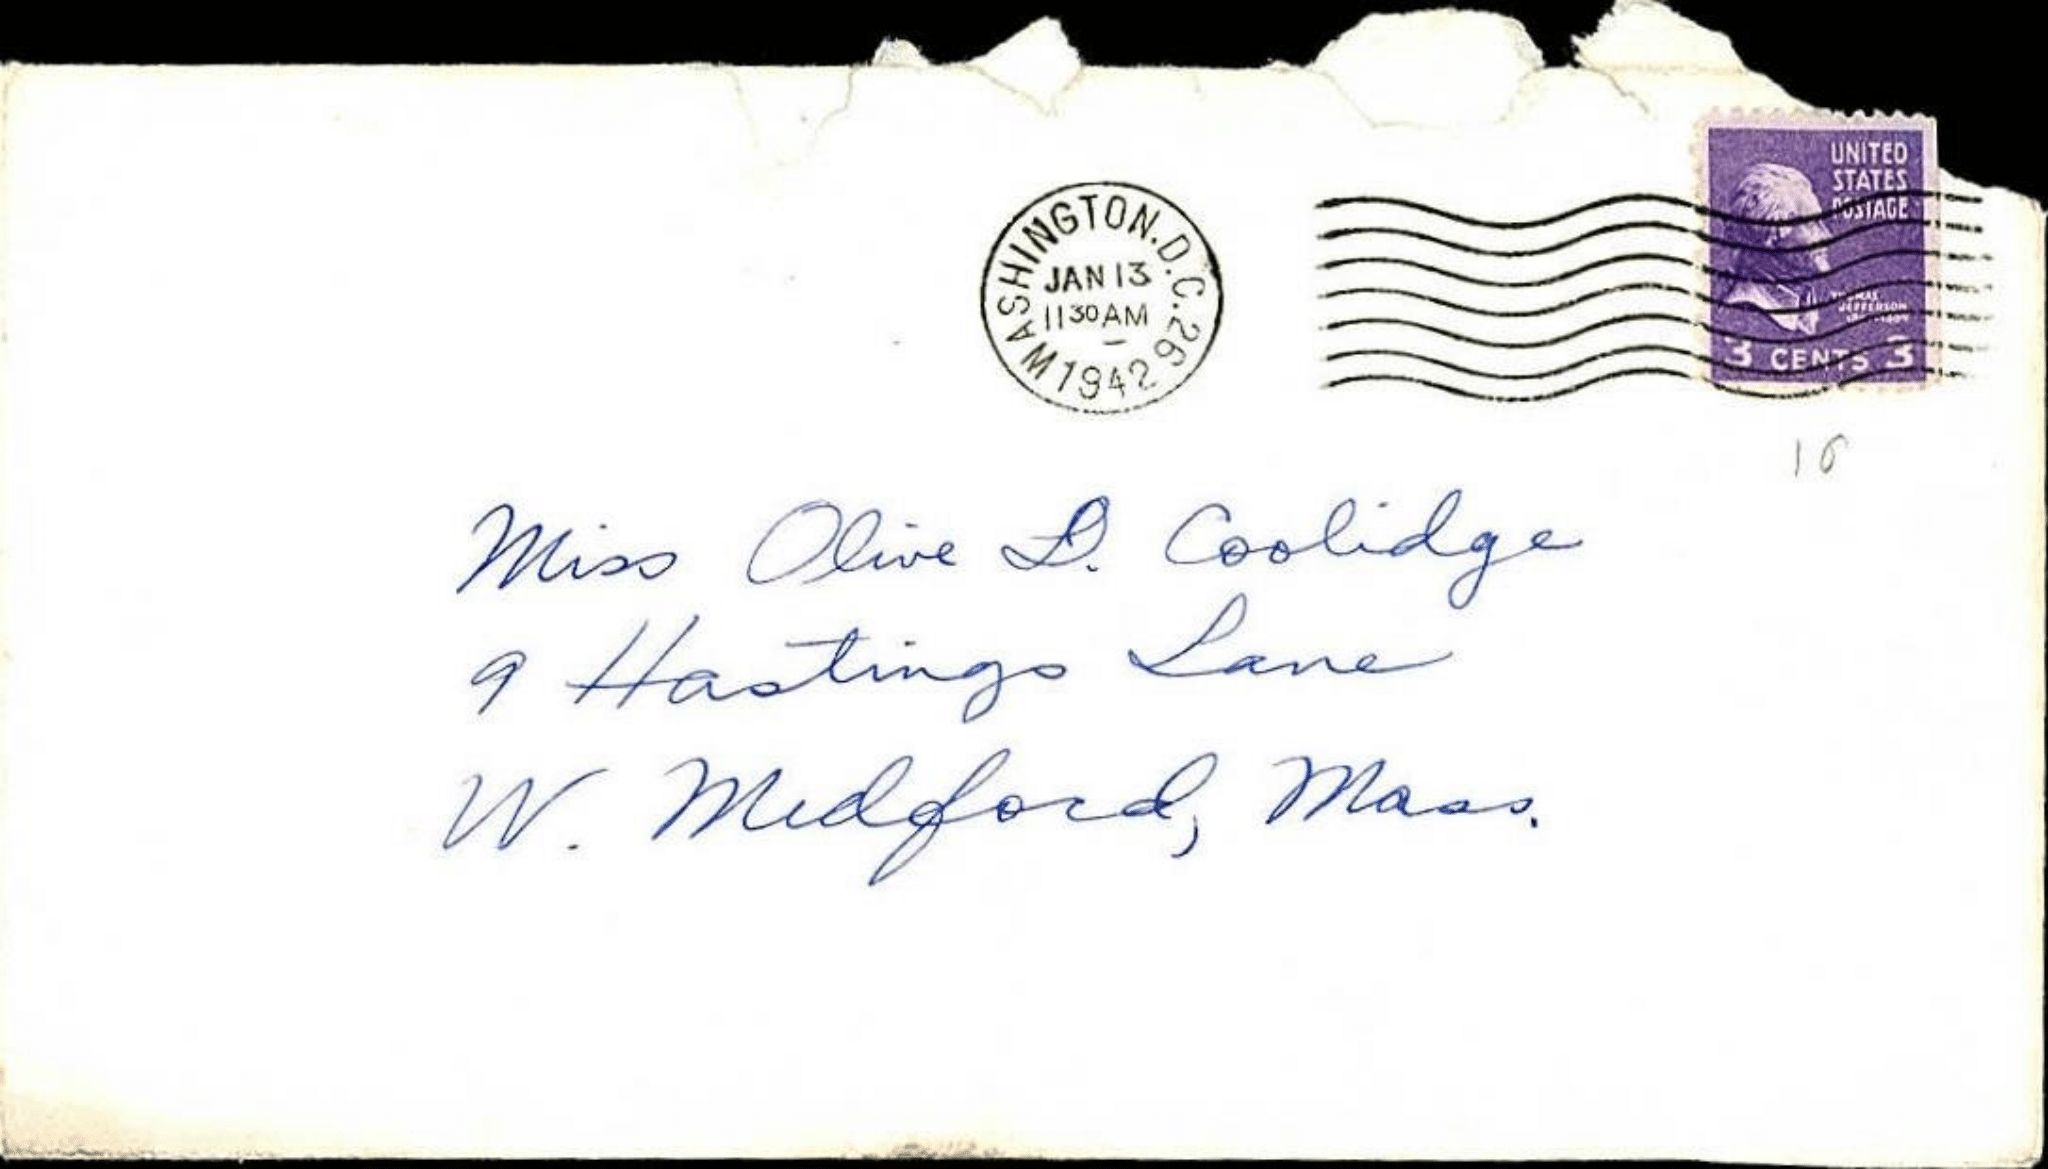 WASHINGTON, D.C. 26
JAN 13
11 30 AM
1942
UNITED
STATES
POSTAGE
THOMAS
JEFFERSON
3 CENTS 3
16
Miss Olive D. Coolidge
9 Hastings Lane
W. Medford, Mass.